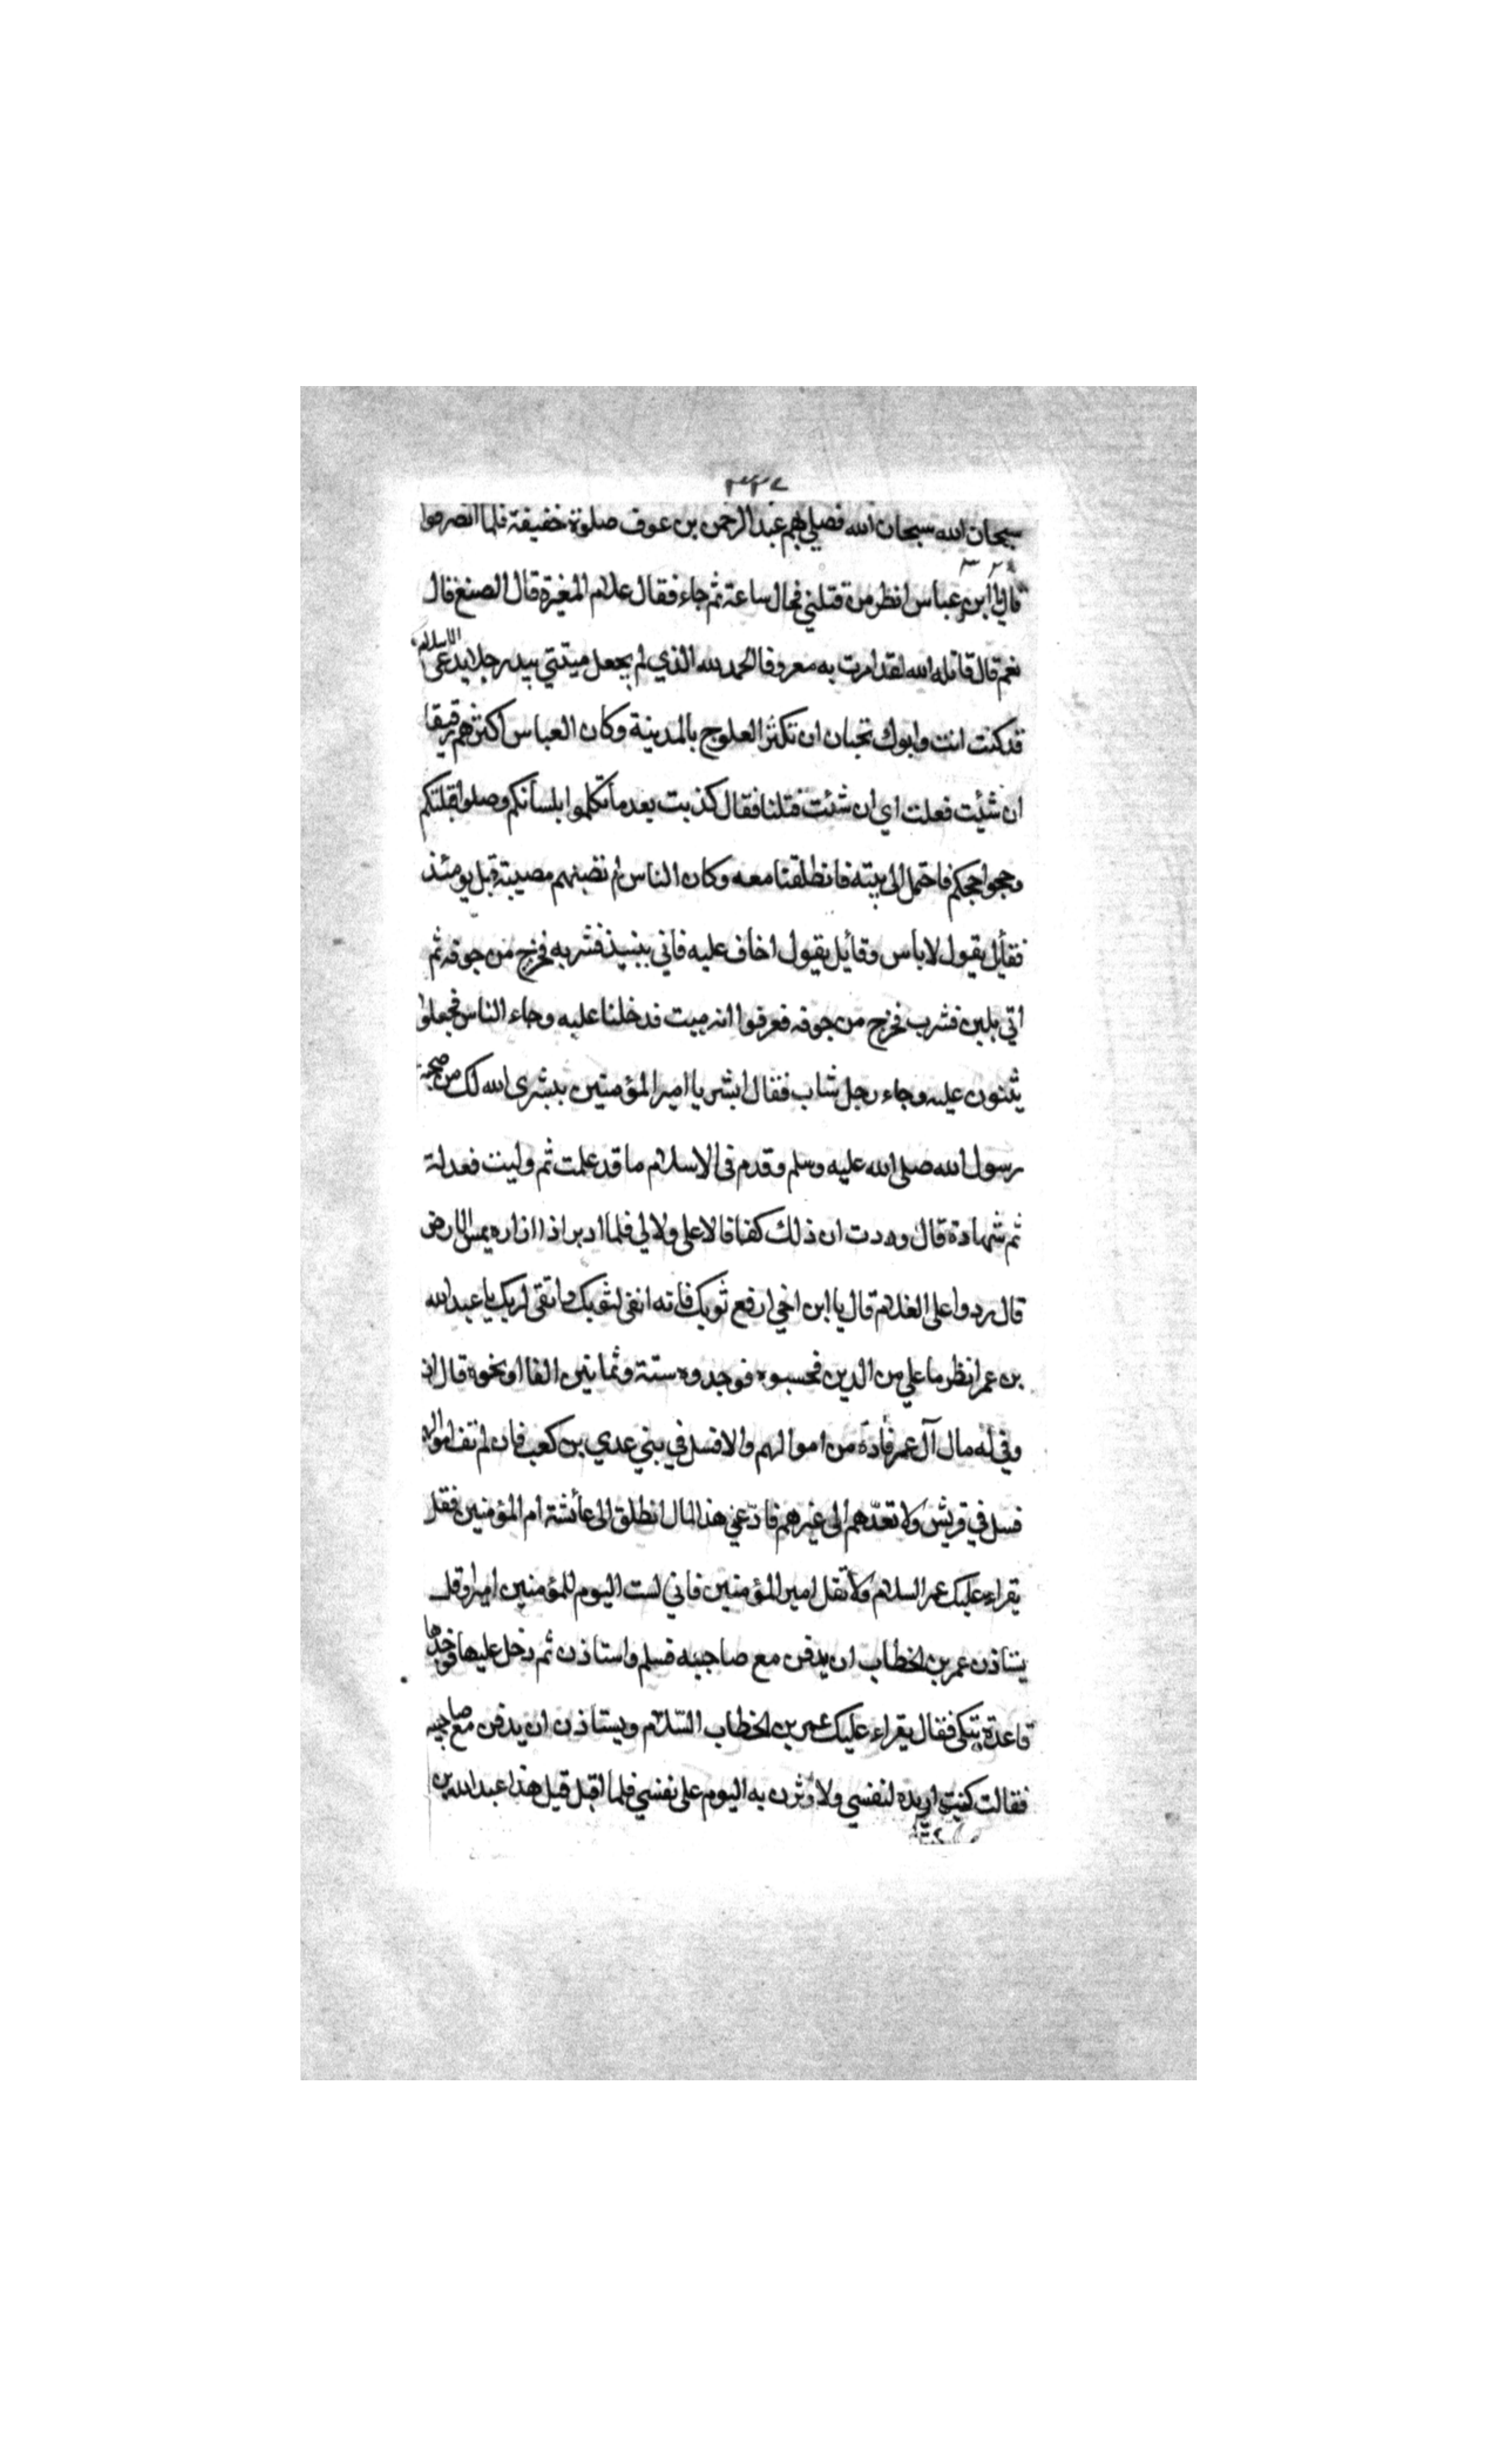 ٣٣٧
سبحان الله سبحان الله فصلى بهم عبد الرحمن بن عوف صلوة خفيفة فلما انصرفوا
قال يا ابن عباس انظر من قتلني فجال ساعة ثم جاء فقال غلام المغيرة قال الصنع قال
نعم قال قاتله الله لقد امرت به معروفا الحمد لله الذي لم يجعل ميتتي بيد رجل يدعي الاسلام
قد كنت انت وابوك تحبان ان تكثر العلوج بالمدينة وكان العباس اكثرهم رقيقا
ان شئت فعلت اي ان شئت قتلنا فقال كذبت بعد ما تكلموا بلسانكم وصلوا قبلتكم
وحجوا حجكم فاحتمل الى بيته فانطلقنا معه وكان الناس لم تصبهم مصيبة قبل يومئذ
فقائل يقول لا باس وقائل يقول اخاف عليه فاتي بنبيذ فشربه فخرج من جوفه ثم
اتي بلبن فشرب فخرج من جوفه فعرفوا انه ميت فدخلنا عليه وجاء الناس فجعلوا
يثنون عليه وجاء رجل شاب فقال ابشر يا امير المؤمنين ببشرى الله لك من صحبة
رسول الله صلى الله عليه وسلم وقدم في الاسلام ما قد علمت ثم وليت فعدلت
ثم شهادة قال وددت ان ذلك كفافا لا علي ولا لي فلما ادبر اذا ازاره يمس الارض
قال ردوا على الغلام قال يا ابن اخي ارفع ثوبك فانه انقى لثوبك واتقى لربك يا عبد الله
بن عمر انظر ما علي من الدين فحسبوه فوجدوه ستة وثمانين الفا او نحوه قال ان
وفى له مال آل عمر فاده من اموالهم والا فسل في بني عدي بن كعب فان لم تف اموالهم
فسل في قريش ولا تعدهم الى غيرهم فاد عني هذا المال انطلق الى عائشة ام المؤمنين فقل
يقراء عليك عمر السلام ولا تقل امير المؤمنين فاني لست اليوم للمؤمنين اميرا وقل
يستاذن عمر بن الخطاب ان يدفن مع صاحبيه فسلم واستاذن ثم دخل عليها فوجدها
قاعدة تبكي فقال يقراء عليك عمر بن الخطاب السلام ويستاذن ان يدفن مع صاحبيه
فقالت كنت اريده لنفسي ولاوثرن به اليوم على نفسي فلما اقبل قيل هذا عبد الله بن